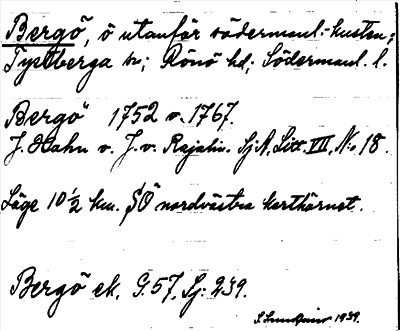 Bergö, ö utanför södermanl.-kusten;
Tystberga sn; Rönö hd; Södermanl. l.
Bergö 1752 o. 1767.
J. Hahn o. J. v. Rajalin. Sj A, Litt. VII, No 18.
Läge 10 1/2 km. SÖ nordvästra karthörnet.
Bergö ek. G. 57, Sj: 239.
1939.